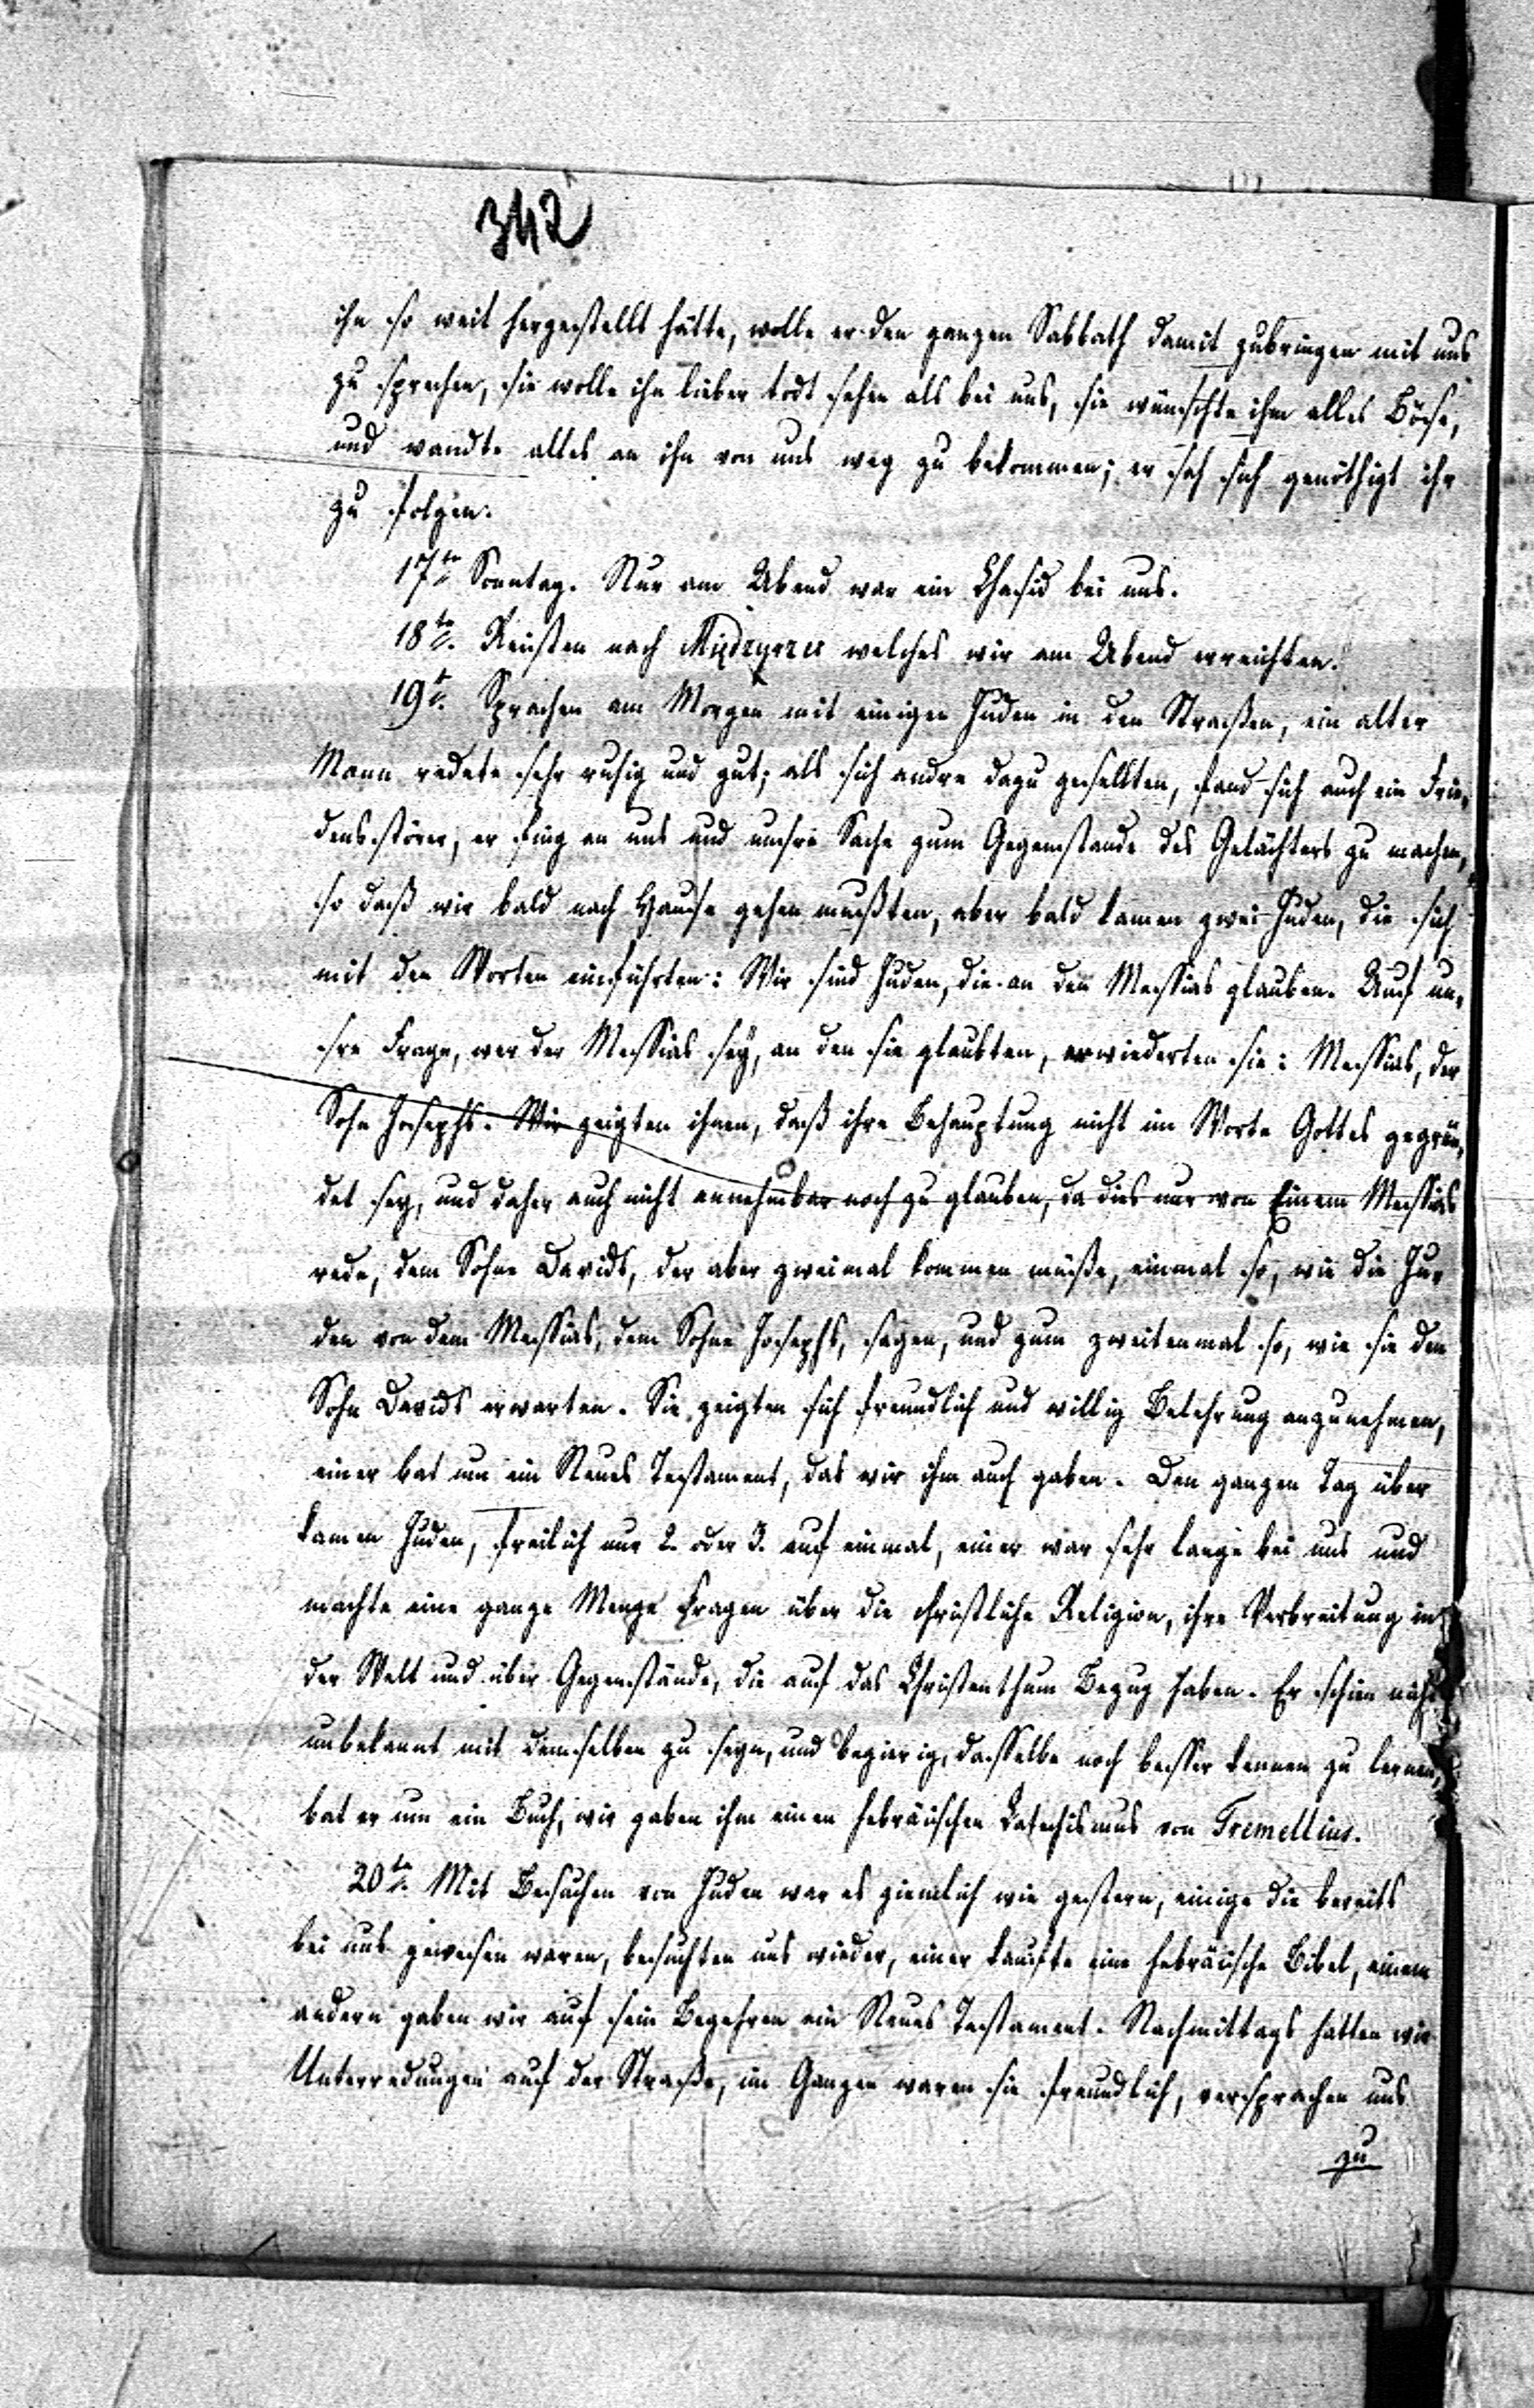 342
ihn so weit hergestellt hätte, wolle er den ganzen Sabbath damit zubringen mit uns
zu sprechen, sie wolle ihn lieber todt sehen als bei uns, sie wünschte ihm alles Böse,
und wandte alles an ihn von uns weg zu bekommen; er sah sich genöthigt ihr
zu folgen.
17te Sonntag. Nur am Abend war ein Chasid bei uns.
18te. Reisten nach Międzyrzec welches wir am Abend erreichten.
19t. Sprachen am Morgen mit einigen Juden in den Straßen, ein alter
Mann redete sehr ruhig und gut; als sich andre dazu gesellten, fand sich auch ein Frie-
densstörer, er fing an uns und unsre Sache zum Gegenstande des Gelächters zu machen,
so daß wir bald nach Hause gehen mußten, aber bald kamen zwei Juden, die sich
mit den Worten einführten: Wir sind Juden, die an den Messias glauben. Auf un-
sre Frage, wer der Messias sey, an den sie glaubten, erwiederten sie: Messias, der
Sohn Josephs. Wir zeigten ihnen, daß ihre Behauptung nicht im Worte Gottes gegrün-
det sey, und daher auch nicht annehmbar noch zu glauben, da dies nur von Einem Messias
rede, dem Sohne Davids, der aber zweimal kommen müße, einmal so, wie die Ju-
den von dem Messias, dem Sohne Josephs, sagen, und zum zweitenmal so, wie sie den
Sohn Davids erwarten. Sie zeigten sich freundlich und willig Belehrung anzunehmen,
einer bat um ein Neues Testament, das wir ihm auch gaben. Den ganzen Tag über
kamen Juden, freilich nur 2. oder 3. auf einmal, einer war sehr lange bei uns und
machte eine ganze Menge Fragen über die christliche Religion, ihre Verbreitung in
der Welt und über Gegenstände, die auf das Christenthum Bezug haben. Er schien nicht
unbekannt mit demselben zu seyn, und begierig, dasselbe noch besser kennen zu lernen,
bat er um ein Buch, wir gaben ihm einen hebräischen Catechismus von Tremellius.
20te. Mit Besuchen von Juden war es ziemlich wie gestern, einige die bereits
bei uns gewesen waren, besuchten uns wieder, einer kaufte eine hebräische Bibel, einem
andern gaben wir auf sein Begehren ein Neues Testament. Nachmittags hatten wir
Unterredungen auf der Straße, im Ganzen waren sie freundlich, versprachen uns
zu